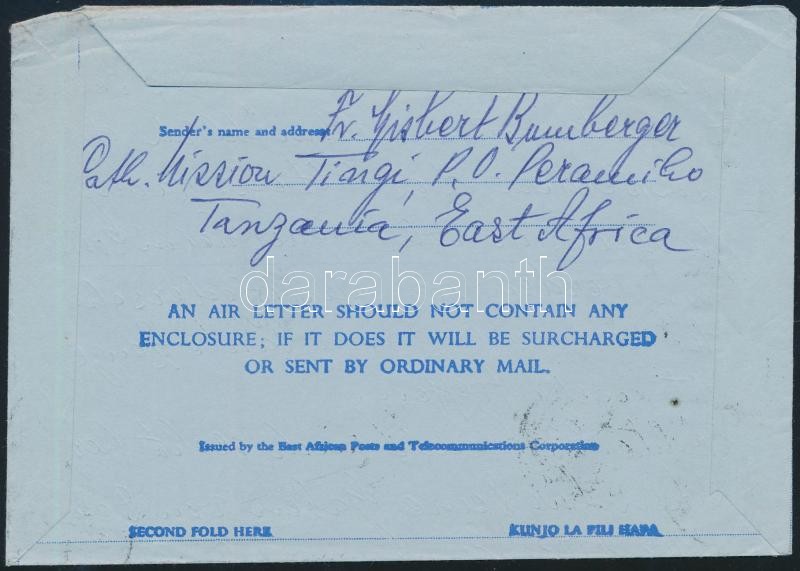 Sender's name and address: Fr. Gisbert Bumberger
Cath. Mission Tingi, P.O. Peramiho
Tanzania, East Africa
darabanth
AN AIR LETTER SHOULD NOT CONTAIN ANY
ENCLOSURE; IF IT DOES IT WILL BE SURCHARGED
OR SENT BY ORDINARY MAIL.
Issued by the East African Posts and Telecommunications Corporation
SECOND FOLD HERE
KUNJO LA PILI HAPA